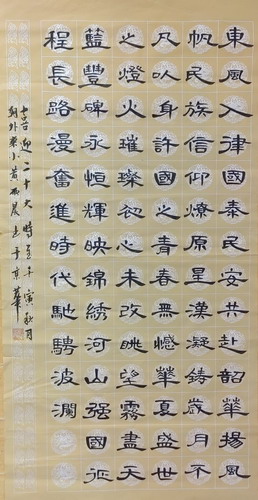 東風入律國泰民安共赴韶華揚風
帆民族信仰燎原星漢凝鑄歲月不
凡以身許國之青春無憾華夏盛世
之燈火璀璨初心未改眺望霧盡天
藍豐碑永恒輝映錦綉河山强國征
程長路漫奮進時代馳騁波瀾
喜迎二十大時壬寅秋月
朝外小晨於京華